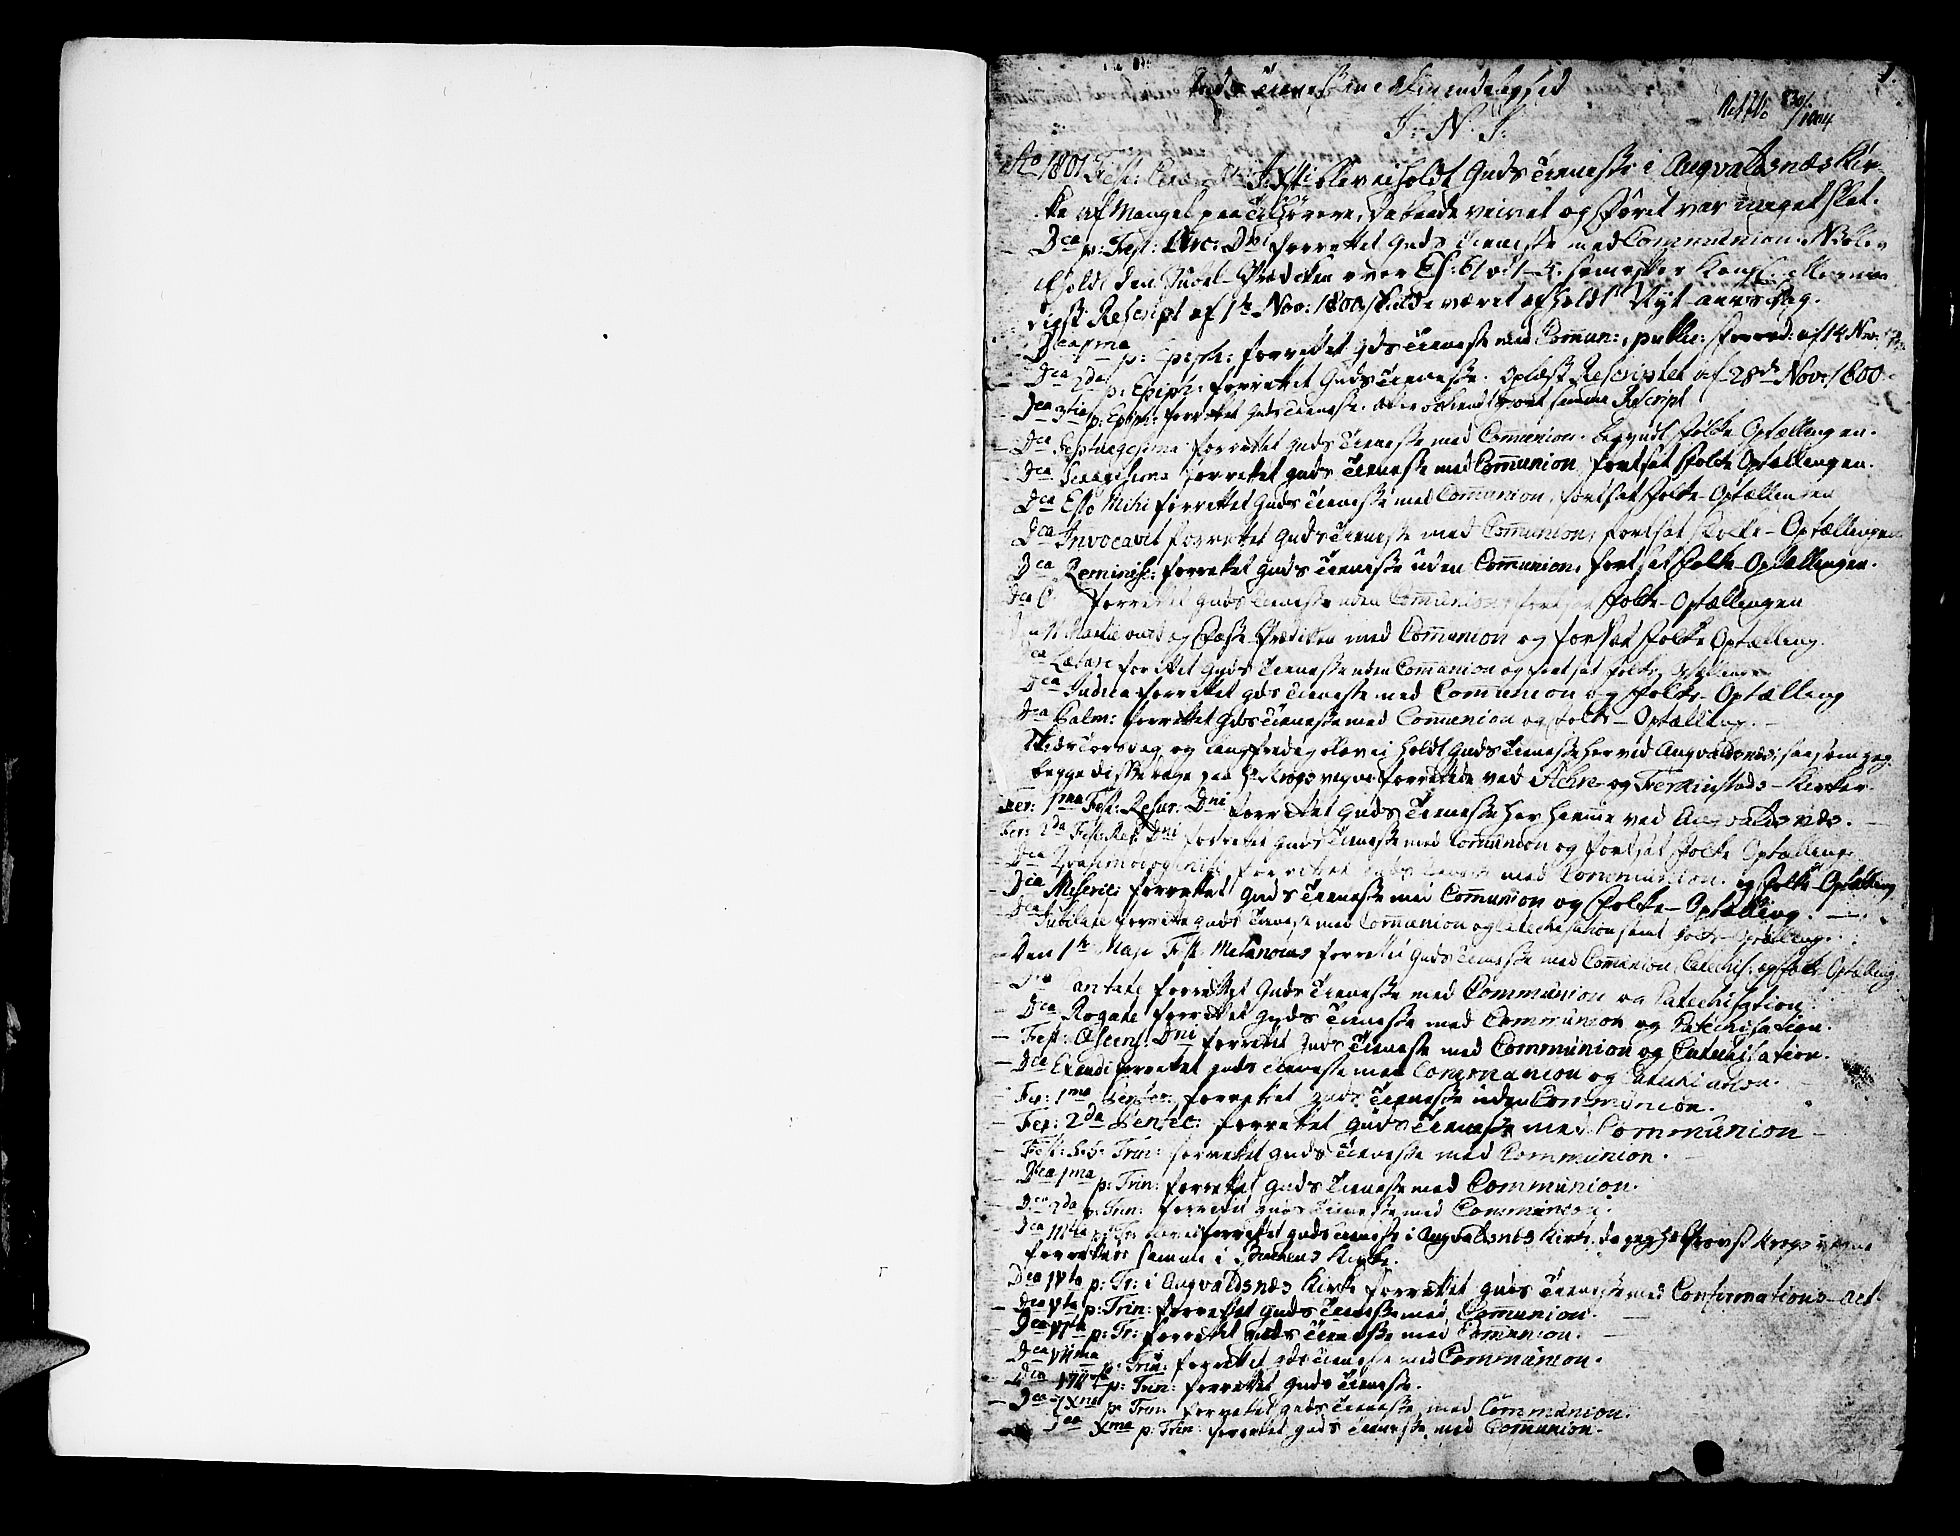 1.
Guds Tienestens
J: N: J:
Ao 1801 Fest: Circ: Dni: J: Xsti blev ei holdt Guds Tieneste i Augvaldsnæs Kir-
ke af Mangel paa Tilhørere, da baade veiret og føret var meget slet.
Dca p: Fest: Circ: Dni forrettet Guds Tieneste med Communion. NB blev
holdt den Jubel-Prædiken over Es: 61 v: 1- som efter Kongl: allernaa-
digst Rescript af 1te Nov: 1800 skulde været afholdt Nyt-aars dag.
Dca 1ma p: Epiph: forrettet Gds Tieneste med Commun:, public: Forord: af 14 Nov:
Dca 2da p: Epiph: forrettet Guds Tieneste. Oplæst Rescriptet af 28de Nov: 1800.
Dca 3tia p: Epiph: forrettet Guds Tieneste. samme Rescript
Dca Septuagesima forrettet Guds Tieneste med Communion. begyndt Folke Optællingen.
Dca Sexagesima forrettet Guds Tieneste med Communion, fortsat Folke Optællingen.
Dca Esto Mihi forrettet Guds Tieneste med Communion, fortsat Folke-Optællingen
Dca Invocavit forrettet Guds Tieneste med Communion, fortsat Folke-Optællingen
Dca Reminisc: forrettet Guds Tieneste uden Communion, fortsat Folke-Optællingen.
Dca forrettet Guds Tieneste uden Communion, fortsat Folke-Optællingen
Den Martii Faste Prædiken med Communion og fortsat Folke Optælling.
Dca Lætare forrettet Guds Tieneste uden Communion og fortsat Folke Optælling
Dca Judica forrettet Gds Tieneste med Communion og Folke-Optælling
Dca Palm: forrettet Guds Tieneste med Communion og Folke-Optælling.
Skiærtorsdag og Langfredag blev ei holdt Guds Tieneste her ved Augvaldsnæs, saasom jeg
begge disse dage paa Hr. Krogs vegne forrettede ved Achre og Ferkinstads-Kirker
Fer: 1ma Fest: Resur: Dni forrettet Guds Tieneste her hiemme ved Augvaldsnæs.
Fer: 2da Fest: Res: Dni forrettet Guds Tieneste med Communion og fortsat Folke Optælling
Dca Quasimodogeniti forrettet Guds Tieneste med Communion og Folke-Optælling
Dca Miseric: forrettet Guds Tieneste med Communion og Folke-Optælling.
Dca Jubilate forrettet Guds Tieneste med Communion og Catechisation samt Folke-Optælling.
Den 1te Maji Fest: Metanoias forrettet Guds Tieneste med Communion, Catechis: og Folke Optælling
Dca Cantate forrettet Guds Tieneste med Communion og Catechisation.
Dca Rogate forrettet Guds Tieneste med Communion og Catechisation.
Fest: Ascens: Dni forrettet Guds Tieneste med Communion og Catechisation.
Dca Exaudi forrettet Guds Tieneste med Communion og Catechisation.
Fer: 1ma Pentec: forrettet Guds Tieneste uden Communion.
Fer: 2da Pentec: forrettet Guds Tieneste med Communion
Fest: S:S: Trin: forrettet Guds Tieneste med Communion.
Dca 1ma p: Trin: forrettet Guds Tieneste med Communion.
Dca 2da p: Trin: forrettet Guds Tieneste med Communion.
Dca IIItia p: Tr: forrettet Guds Tieneste i Augvaldsnæs Kirke, da jeg Hr Provst Krogs vegne
forrettede samme i Kirke.
Dca IVta p: Tr: i Augvaldsnæs Kirke forrettet Guds Tieneste med Confirmations-Act
Dca Vta p: Trin: forrettet Guds Tieneste med Communion.
Dca VIta p: Tr: forrettet Guds Tieneste med Communion.
Dca VIIma p: Trin: forrettet Gds Tieneste med Communion.
Dca VIII p: Trin: forrettet Guds Tieneste.
Dca IXna p: Trin: forrettet Guds Tieneste med Communion.
Dca Xma p: Trin: forrettet Guds Tieneste med Communion.